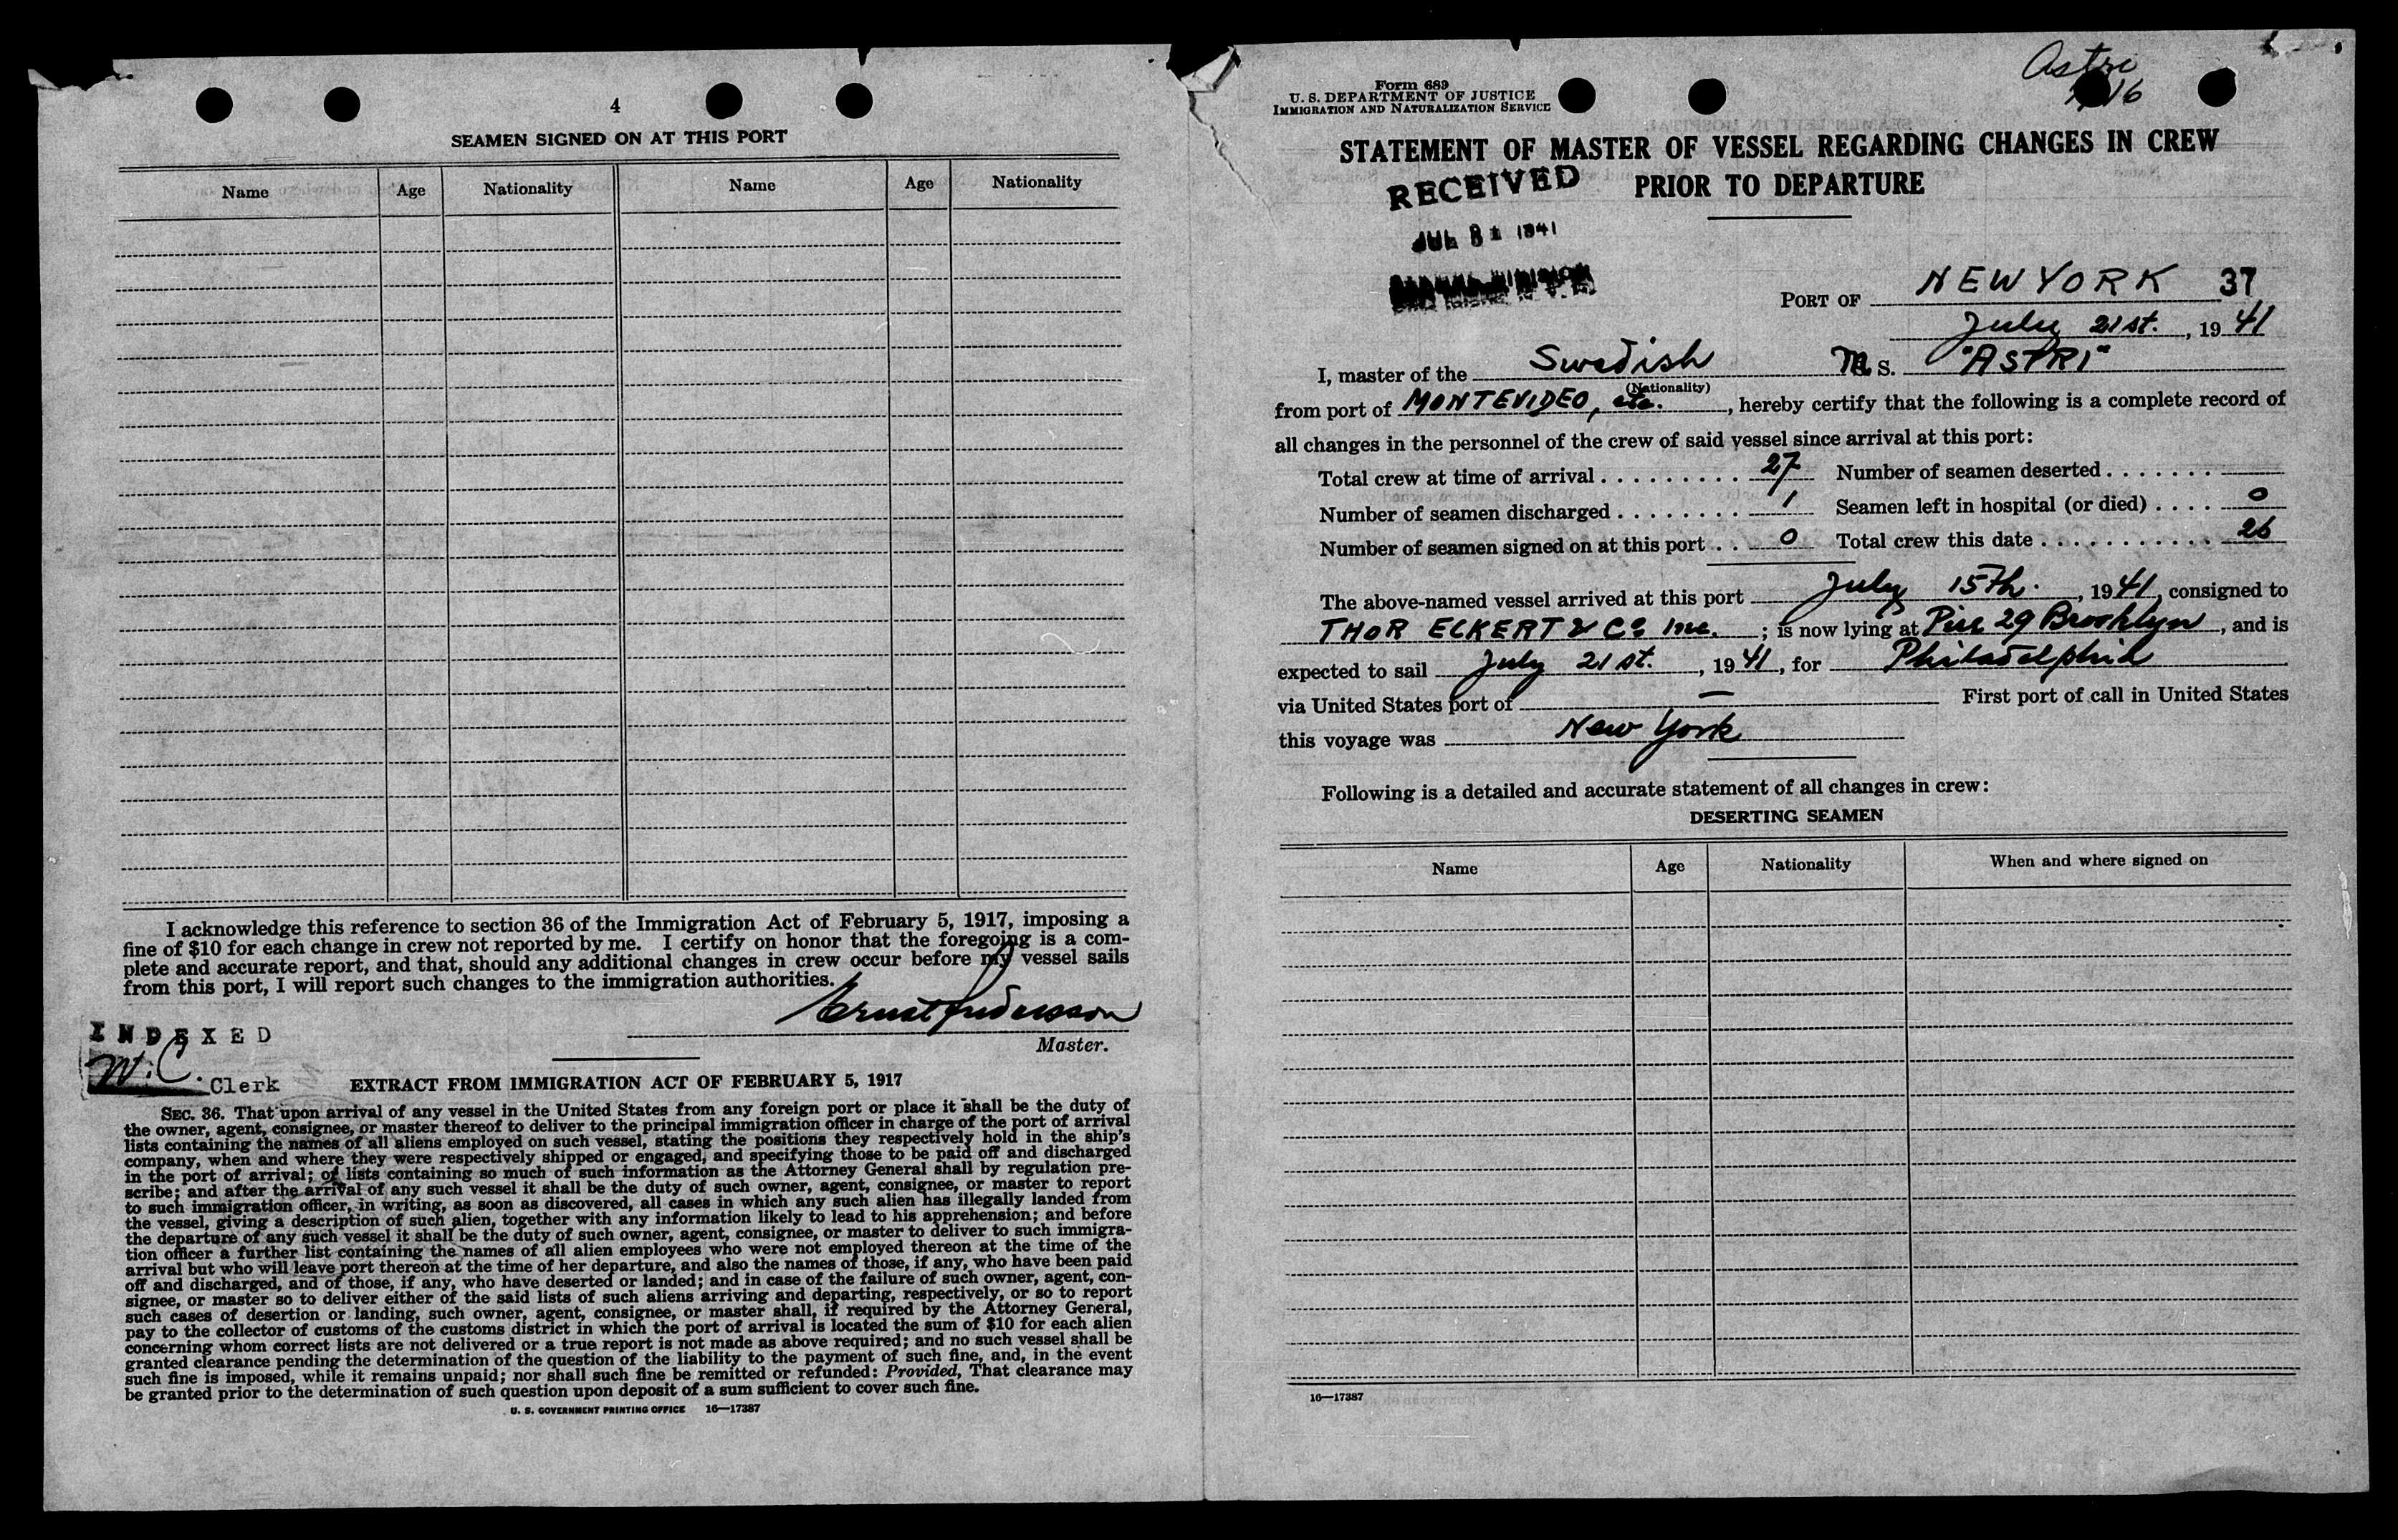 4
SEAMEN SIGNED ON AT THIS PORT
Name Age Nationality Name Age Nationality
I acknowledge this reference to section 36 of the Immigration Act of February 5, 1917, imposing a
fine of $10 for each change in crew not reported by me. I certify on honor that the foregoing is a com-
plete and accurate report, and that, should any additional changes in crew occur before my vessel sails
from this port, I will report such changes to the immigration authorities.
Ernst Andersson
Master.
INDEXED
W.C. Clerk
EXTRACT FROM IMMIGRATION ACT OF FEBRUARY 5, 1917
SEC. 36. That upon arrival of any vessel in the United States from any foreign port or place it shall be the duty of
the owner, agent, consignee, or master thereof to deliver to the principal immigration officer in charge of the port of arrival
lists containing the names of all aliens employed on such vessel, stating the positions they respectively hold in the ship's
company, when and where they were respectively shipped or engaged, and specifying those to be paid off and discharged
in the port of arrival; of lists containing so much of such information as the Attorney General shall by regulation pre-
scribe; and after the arrival of any such vessel it shall be the duty of such owner, agent, consignee, or master to report
to such immigration officer, in writing, as soon as discovered, all cases in which any such alien has illegally landed from
the vessel, giving a description of such alien, together with any information likely to lead to his apprehension; and before
the departure of any such vessel it shall be the duty of such owner, agent, consignee, or master to deliver to such immigra-
tion officer a further list containing the names of all alien employees who were not employed thereon at the time of the
arrival but who will leave port thereon at the time of her departure, and also the names of those, if any, who have been paid
off and discharged, and of those, if any, who have deserted or landed; and in case of the failure of such owner, agent, con-
signee, or master so to deliver either of the said lists of such aliens arriving and departing, respectively, or so to report
such cases of desertion or landing, such owner, agent, consignee, or master shall, if required by the Attorney General,
pay to the collector of customs of the customs district in which the port of arrival is located the sum of $10 for each alien
concerning whom correct lists are not delivered or a true report is not made as above required; and no such vessel shall be
granted clearance pending the determination of the question of the liability to the payment of such fine, and, in the event
such fine is imposed, while it remains unpaid; nor shall such fine be remitted or refunded: Provided, That clearance may
be granted prior to the determination of such question upon deposit of a sum sufficient to cover such fine.
U. S. GOVERNMENT PRINTING OFFICE 16—17387
Form 689
U. S. DEPARTMENT OF JUSTICE
IMMIGRATION AND NATURALIZATION SERVICE
Astri
STATEMENT OF MASTER OF VESSEL REGARDING CHANGES IN CREW
PRIOR TO DEPARTURE
RECEIVED
JUL 1941
PORT OF NEW YORK 37
July 21st., 19 41
I, master of the Swedish M. S. "ASTRI"
(Nationality)
from port of MONTEVIDEO, etc., hereby certify that the following is a complete record of
all changes in the personnel of the crew of said vessel since arrival at this port:
Total crew at time of arrival 27 Number of seamen deserted
Number of seamen discharged 1 Seamen left in hospital (or died) 0
Number of seamen signed on at this port 0 Total crew this date 26
The above-named vessel arrived at this port July 15th., 19 41, consigned to
THOR ECKERT & Co Inc. ; is now lying at Pier 29 Brooklyn, and is
expected to sail July 21 st., 19 41, for Philadelphia
via United States port of — First port of call in United States
this voyage was New York
Following is a detailed and accurate statement of all changes in crew:
DESERTING SEAMEN
Name Age Nationality When and where signed on
16—17387